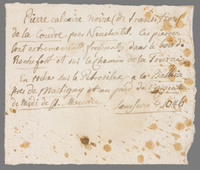 Pierre calcaire noire (de transition)
de la Coudre, près Neuchatel. Ces pierres
sont extremement frequentes dans le bois de
Rochefort et sur le chemin de la Tourne
En roches sur le Pétrosilex, a la
près de Martigny et au pied de
de Midi de St Maurice. Saussure § 1046